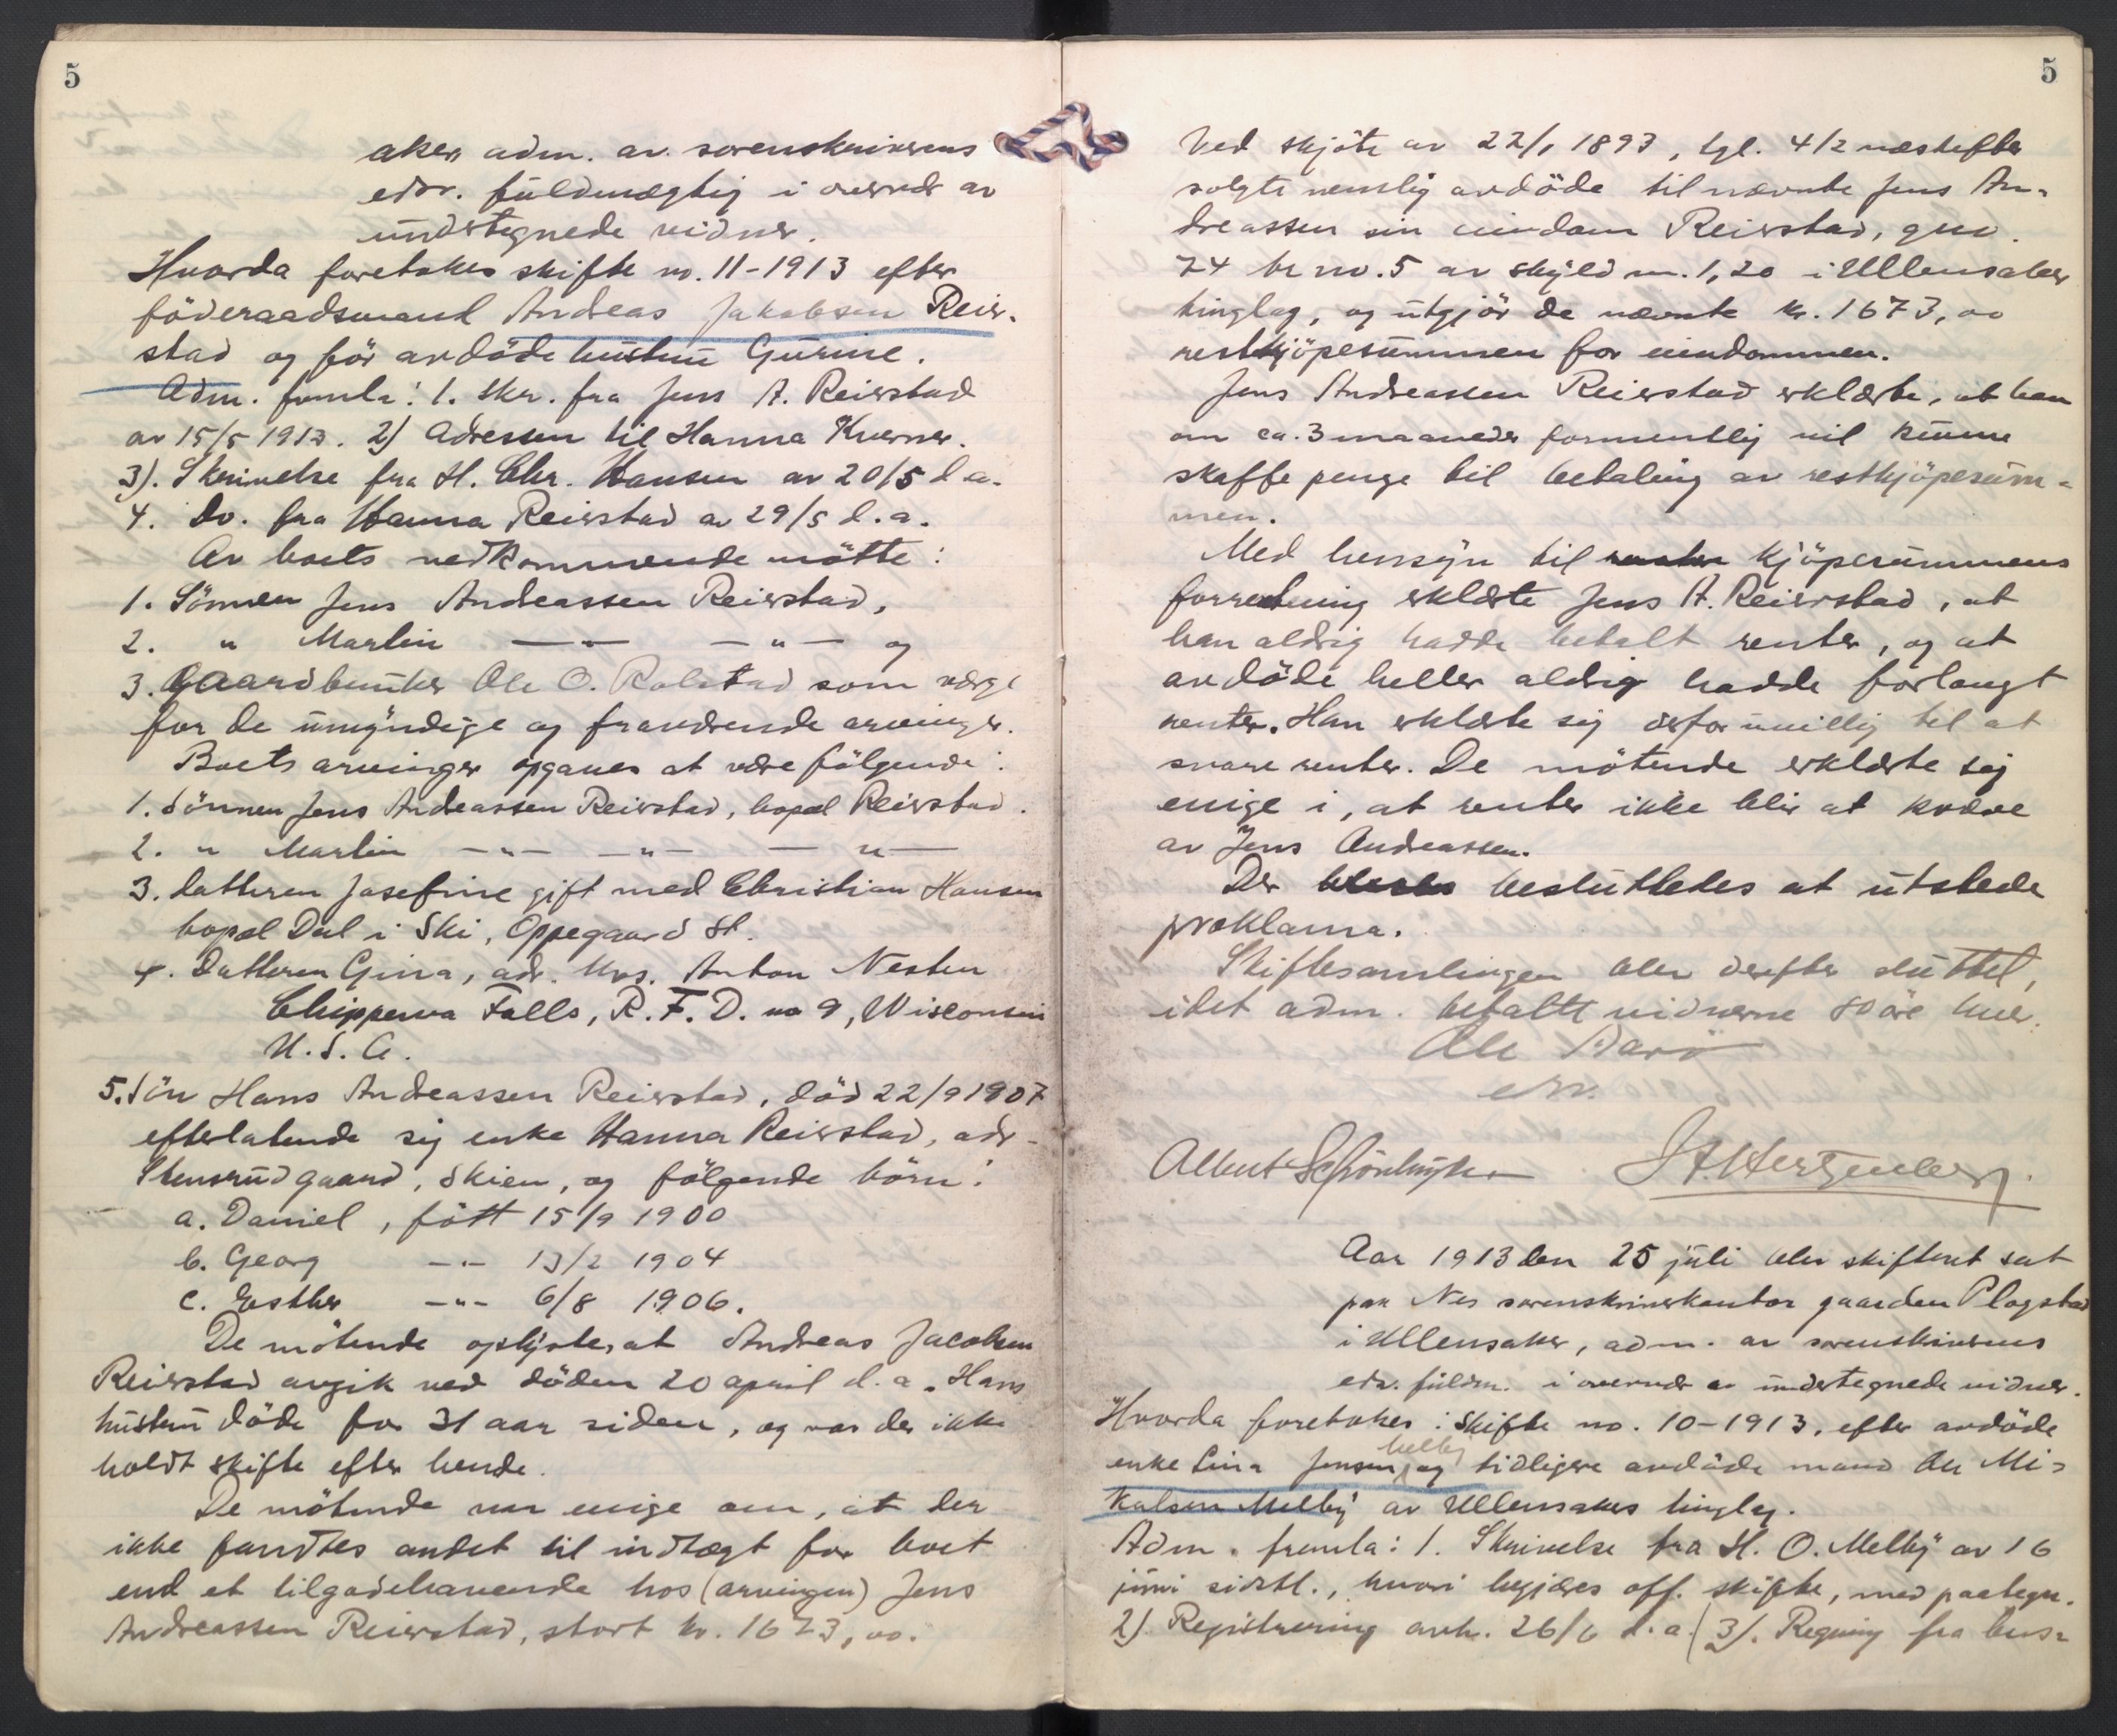 5
aker adm. av. sorenskriverens
edsv. fuldmægtig i overvær av
undertegnede vidner.
Hvorda foretokes skifte no. 11-1913 efter
föderaadsmand Andreas Jakobsen Reier-
stad og för avdöde hustru Gurine.
Adm. fremla: 1. Skr. fra Jens A. Reierstad
av 15/5 1913. 2) Adressen til Hanna Kverner.
3). Skrivelse fra H. Chr. Hansen av 20/5 d.a.
4. Do. fra Hanna Reierstad av 29/5 d.a.
Av boets vedkommende mötte:
1. Sönnen Jens Andreassen Reierstad,
2. " Martin —"— —"— og
3. Gaardbruker Ole O. Rolstad som værge
for de umyndige og fraværende arvinger.
Boets arvinger opgaves at være fölgende:
1. Sönnen Jens Andreassen Reierstad, bopæl Reierstad.
2. " Martin —"— —"— — " —
3. datteren Josefine gift med Christian Hansen
bopæl Dal i Ski, Oppegaard St.
4. Datteren Gina, adr. Mrs. Anton Nesten
Chippewa Falls, R.F.D. no 9, Wisconsin
U.S.A.
5. Sön Hans Andreassen Reierstad, död 22/9 1907
efterlatende sig enke Hanna Reierstad, adr-
Stensrudgaard, Skien, og fölgende börn:
a. Daniel, fött 15/9 1900
b. Georg —"— 13/2 1904
c. Esther —"— 6/8 1906.
De mötende oplyste, at Andreas Jacobsen
Reierstad avgik ved döden 20 april d.a. Hans
hustru döde for 31 aar siden, og var der ikke
holdt skifte efter hende.
De mötende var enige om, at der
ikke fandtes andet til indtægt for boet
end et tilgodehavende hos (arvingen) Jens
Andreassen Reierstad, stort kr. 1673,00.
5
Ved skjöte av 22/1 1893, tgl. 4/2 næstefter
solgte nemlig avdöde til nævnte Jens An-
dreassen sin eiendom Reierstad, gno.
74 br no. 5 av skyld m. 1,20 i Ullensaker
tinglag, og utgjör de nævnte kr. 1673,00
restkjöpesummen for eiendommen.
Jens Andreassen Reierstad erklærte, at han
om ca. 3 maaneder formentlig vil kunne
skaffe penge til betaling av restkjöpesum-
men.
Med hensyn til kjöpesummens
forrentning erklærte Jens A. Reierstad, at
han aldrig hadde betalt renter, og at
avdöde heller aldrig hadde forlangt
renter. Han erklærte sig derfor uvillig til at
svare renter. De mötende erklærte sig
enige i, at renter ikke blir at kræve
av Jens Andreassen.
Der besluttedes at utstede
proklama.
Skiftesamlingen blev derefter sluttet,
idet adm. betalte vidnerne 80 öre hver.
Ole
edsv.
Albert
Aar 1913 den 25 juli blev skifteret sat
paa Nes sorenskriverkontor gaarden Plogstad
i Ullensaker, adm. av sorenskriverens
edsv. fuldm. i overvær av undertegnede vidner.
Hvorda foretokes: Skifte no. 10-1913, efter avdöde
enke Lina Jensen Melby og tidligere avdöde mand Ole Mi-
kalsen Melby av Ullensakers tinglag.
Adm. fremla: 1. Skrivelse fra H. O. Melby av 16
juni sidstl., hvori begjæres off. skifte, med paategn.
2) Registrering avh. 26/6 d.a. (3). Regning fra